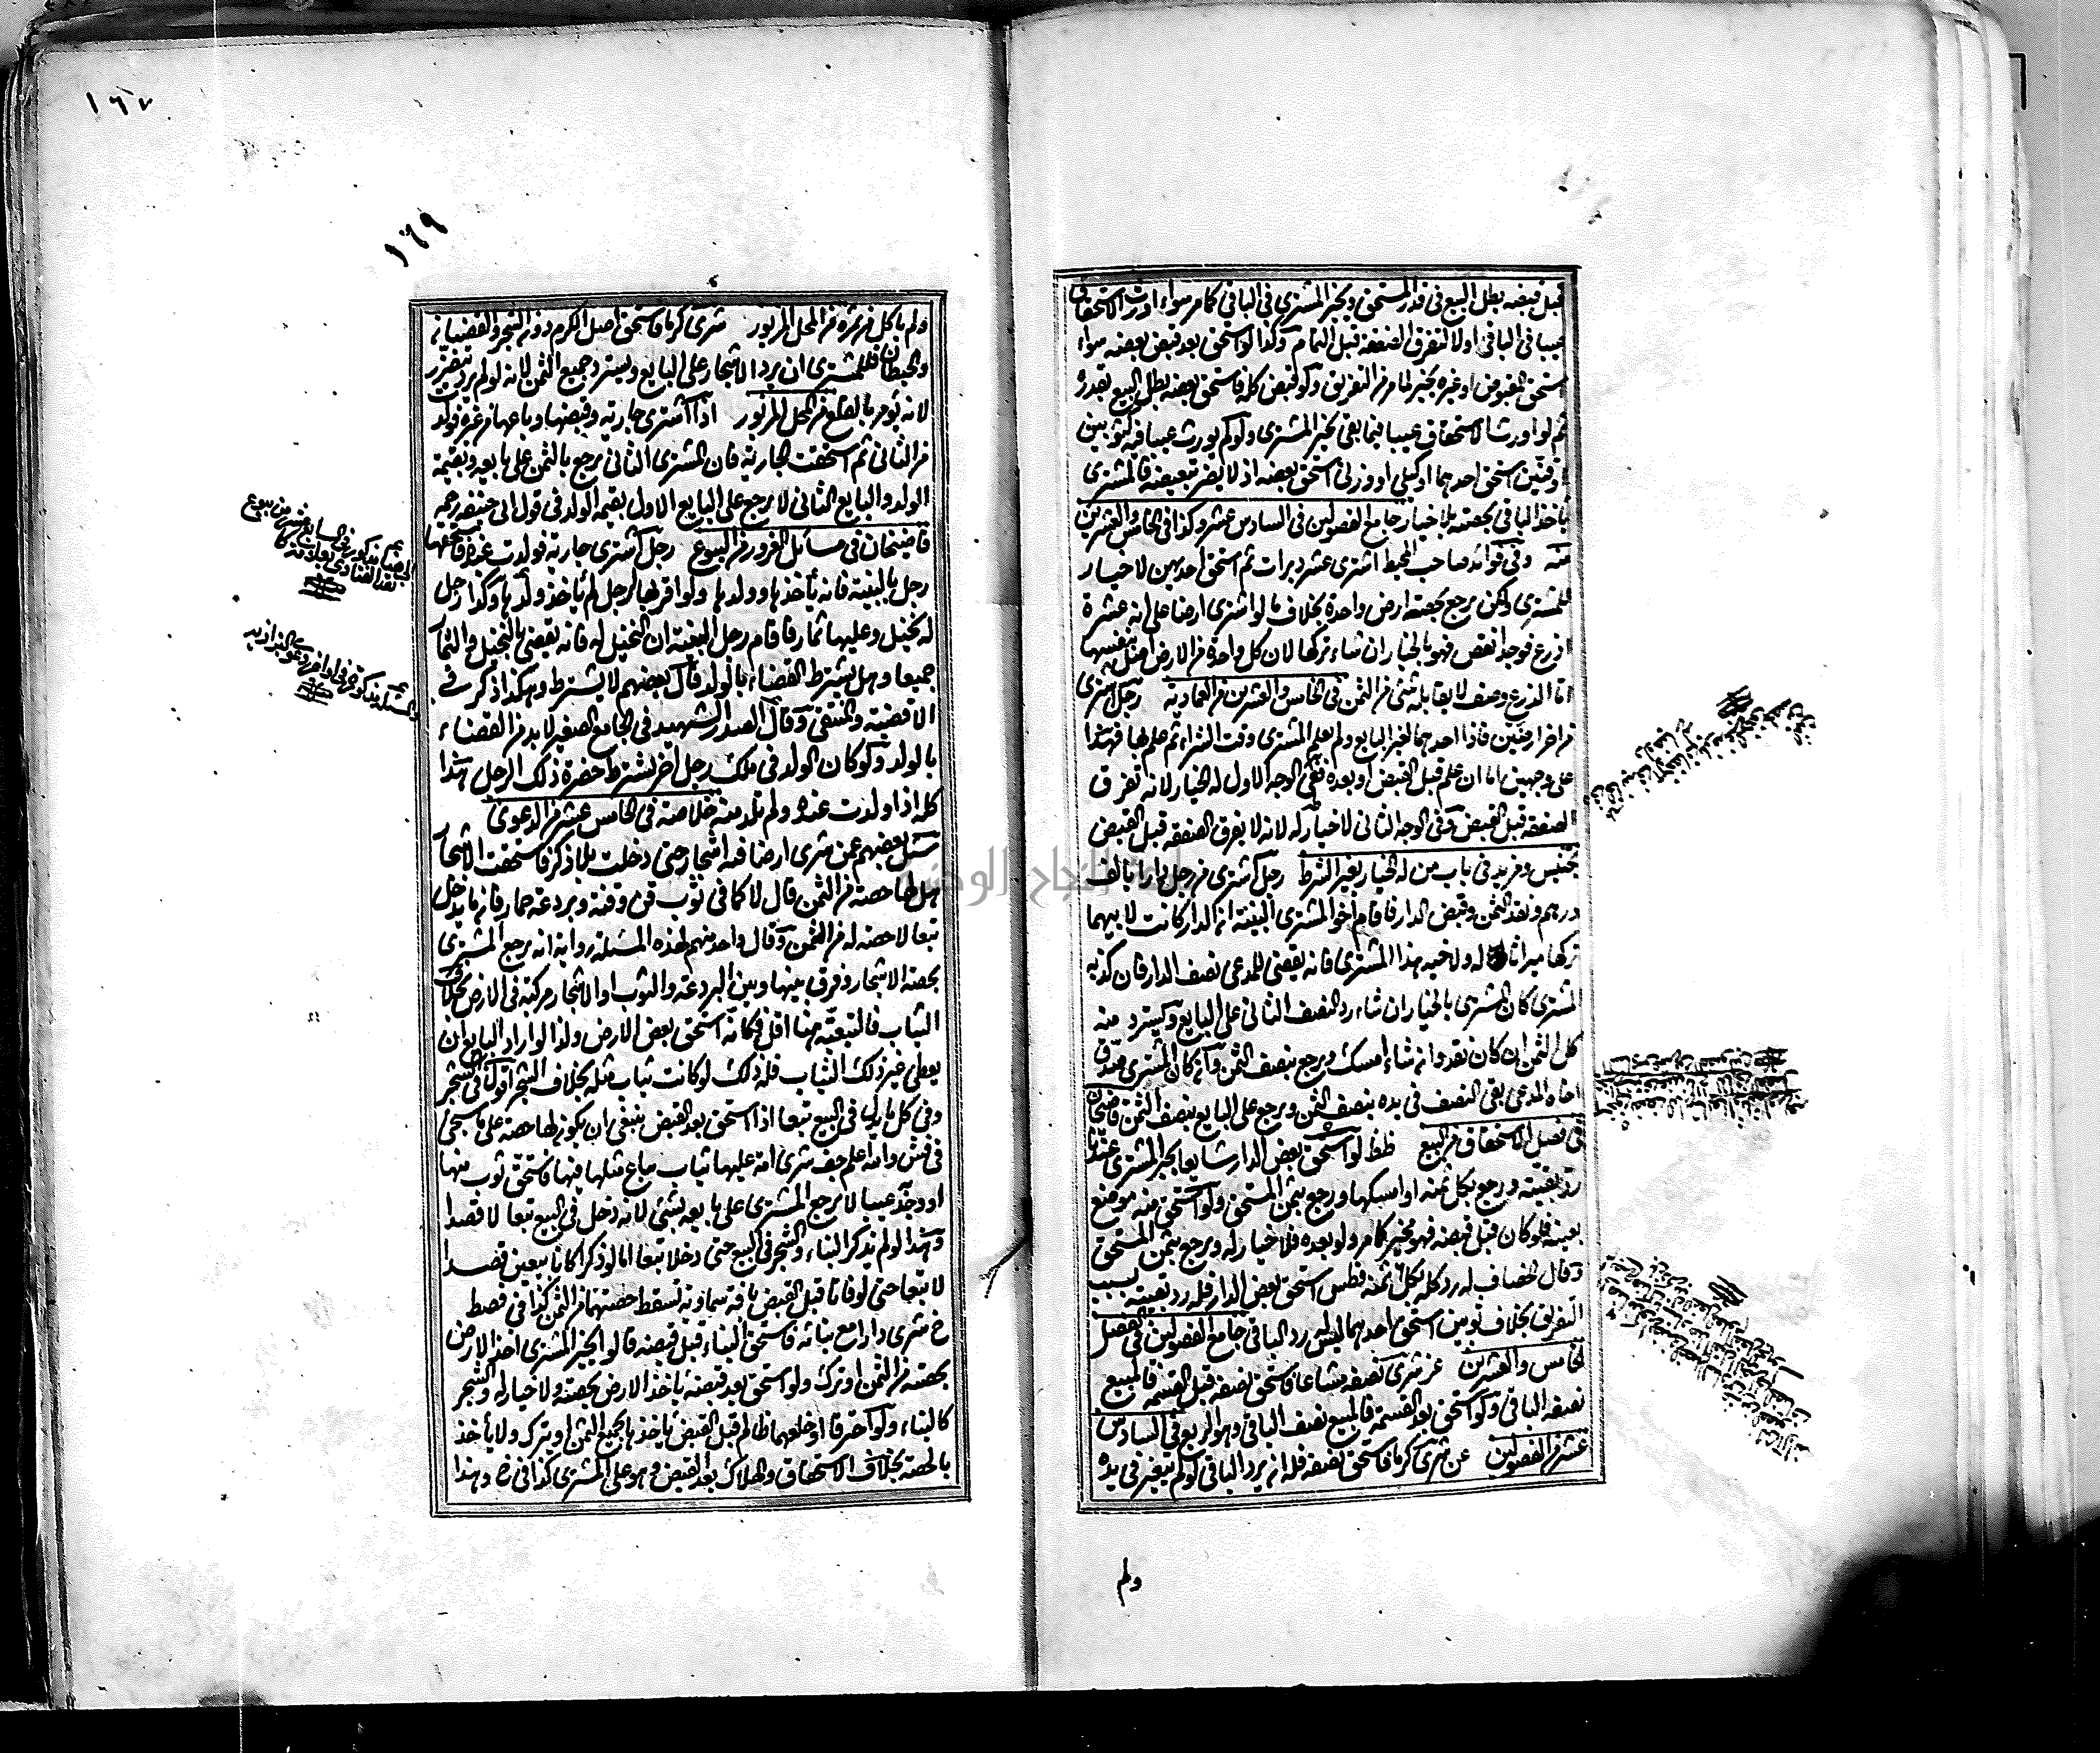 قبل قبضه بطل البيع في قدر المستحق ويخير المشتري في الباقي كما مر سواء اورث الاستحقاق
عيبا في الباقي اولا لتفرق الصفقة قبل التمام وكذا لو استحق بعد قبض بعضه سواء
استحق المقبوض او غيره يخير لما مر من التفريق ولو قبض كله فاستحق بعضه بطل البيع بقدره
ثم لو اورث الاستحقاق عيبا فيما بقي يخير المشتري ولو لم يورث عيبا فيه كثوبين
او قنين استحق احدهما او كيلي او وزني استحق بعضه اذ لا يضر تبعيضه فالمشتري
يأخذ الباقي بحصته بلا خيار جامع الفصولين في السادس عشر وكذا في الخامس والعشرين
منه وفي فوائد صاحب المحيط اشترى عشر دبرات ثم استحق احديهن لا خيار
للمشتري ولكن يرجع بحصته ارض واحدة بخلاف ما لو اشترى ارضا على انه عشرة
اذرع فوجد انقص فهو بالخيار ان شاء تركها لان كل واحدة من الارض اصل بنفسها
اما الذرع وصف لا يقابله شئ من الثمن في الخامس والعشرين من العمادية رجل اشترى
من اخر ارضين فاذا احدهما لغير البايع ولم يعلم المشتري وقت الشراء ثم علم بها فهذا
على وجهين اما ان علم قبل القبض او بعده ففي الوجه الاول له الخيار لانه تفرق
الصفقة قبل القبض وفي الوجه الثاني لا خيار له لانه لا تفرق الصفقة قبل القبض
تجنيس ومزيد في باب من له الخيار بغير الشرط رجل اشترى من رجل دارا بالف
درهم ونقد الثمن وقبض الدار فاقام اخو المشتري البينة ان الدار كانت لابيهما
تركها ميراثا له ولاخيه هذا المشتري فانه يقضي للمدعي نصف الدار فان كذبه
المشتري كان المشتري بالخيار ان شاء رد النصف الثاني على البايع ويسترد منه
كل الثمن ان كان نقد وان شاء امسك ويرجع بنصف الثمن وان كان المشتري صدق
اخاه المدعي بقي النصف في يده بنصف الثمن ويرجع على البايع بنصف الثمن قاضيخان
في فصل الاستحقاق من البيع ظظ لو استحق بعض الدار شايعا يخير المشتري عندنا
رد بقيته ورجع بكل ثمنه او امسكها ورجع بثمن المستحق ولو استحق منه موضع
بعينه فلو كان قبل قبضه فهو مخير كما مر ولو بعده فلا خيار له ويرجع بثمن المستحق
وقال الخصاف له رد كله بكل ثمنه فطس استحق بعض الدار فله رد بقيته بسبب
التفريق بخلاف ثوبين استحق احدهما ليس له رد الباقي جامع الفصولين في الفصل
الخامس والعشرين عن شرى نصفه مشاعا فاستحق نصفه قبل القسمة فالمبيع
نصفه الباقي ولو استحق بعد القسمة فالمبيع نصف الباقي وهو الربع في السادس
عشر من الفصولين عن شرى كرما فاستحق نصفه فله ان يرد الباقي لو لم يتغير في يده
ولم
١٦٧
١٦٩
ولم يأكل من ثمره من المحل المزبور شرى كرما فاستحق اصل الكرم دون الشجر والقضبان
والحيطان فللمشتري ان يرد الاشجار على البايع ويسترد جميع الثمن لانه لو لم يرد يتضرر
لانه يؤمر بالقلع من المحل المزبور اذا اشترى جارية وقبضها وباعها من غيره فولدت
من الثاني ثم استحقت الجارية فان المشتري الثاني يرجع بالثمن على بايعه وبقيمة
الولد والبايع الثاني لا يرجع على البايع الاول بقيمة الولد في قول ابي حنيفة رحمه
قاضيخان في مسائل الغرور من البيوع رجل اشترى جارية فولدت عنده فاستحقها
رجل بالبينة فانه يأخذها وولدها ولو اقر بها لرجل لم يأخذ ولدها وكذا رجل
له نخيل وعليها ثمار فاقام رجل البينة ان النخيل له فانه يقضي بالنخيل والثمار
جميعا وهل يشترط القضاء بالولد قال بعضهم لا يشترط وهكذا ذكر في
الاقضية والمنتقى وقال الصدر الشهيد في الجامع الصغير لابد من القضاء
بالولد ولو كان الولد في ملك رجل اخر يشترط حضرة ذلك الرجل هذا
كله اذا ولدت عنده ولم تلد منه خلاصة في الخامس عشر من الدعوى
سئل بعضهم عن شرى ارضا فيه اشجار حتى دخلت بلا ذكر فاستحقت الاشجار
هل لها حصة من الثمن قال لا كما في ثوب قن وقنة وبردعة حمار فان ما يدخل
تبعا لا حصة له من الثمن وقال واحد منهم لهذه المسئلة رواية انه يرجع المشتري
بحصة الاشجار وفرق بينها وبين البردعة والثوب اذ الاشجار مركبة في الارض بخلاف
الثياب فالتبعية هنا اقل فكأنه استحق بعض الارض ولذا لو اراد البايع ان
يعطي غير ذلك الثياب فله ذلك لو كانت ثياب مثله بخلاف الشجر اقول في الشجر
وفي كل ما يدخل في البيع تبعا اذا استحق بعد القبض ينبغي ان يكون لها حصة على ما سيجئ
في فش والله اعلم جف شرى امة عليها ثياب يباع مثلها فيها فاستحق ثوب منها
او وجد عيبا لا يرجع المشتري على بايعه بشئ لانه دخل في البيع تبعا لا قصدا
وهذا لو لم يذكر البناء والشجر في البيع حتى دخلا تبعا اما لو ذكرا كانا مبيعين قصدا
لا تبعا حتى لو فاتا قبل القبض بافة سماوية تسقط حصتهما من الثمن كذا في قصط
خ شرى دارا مع بنائه فاستحق البناء قبل قبضه قالوا يخير المشتري اخذ الارض
بحصته من الثمن او ترك ولو استحق بعد قبضه يأخذ الارض بحصته ولا خيار له والشجر
كالبناء ولو احترقا او خلعهما ظالم قبل القبض يأخذها بجميع الثمن او يترك ولا يأخذ
بالحصة بخلاف الاستحقاق والهلاك بعد القبض وهو على المشتري كذا في خ وهذا